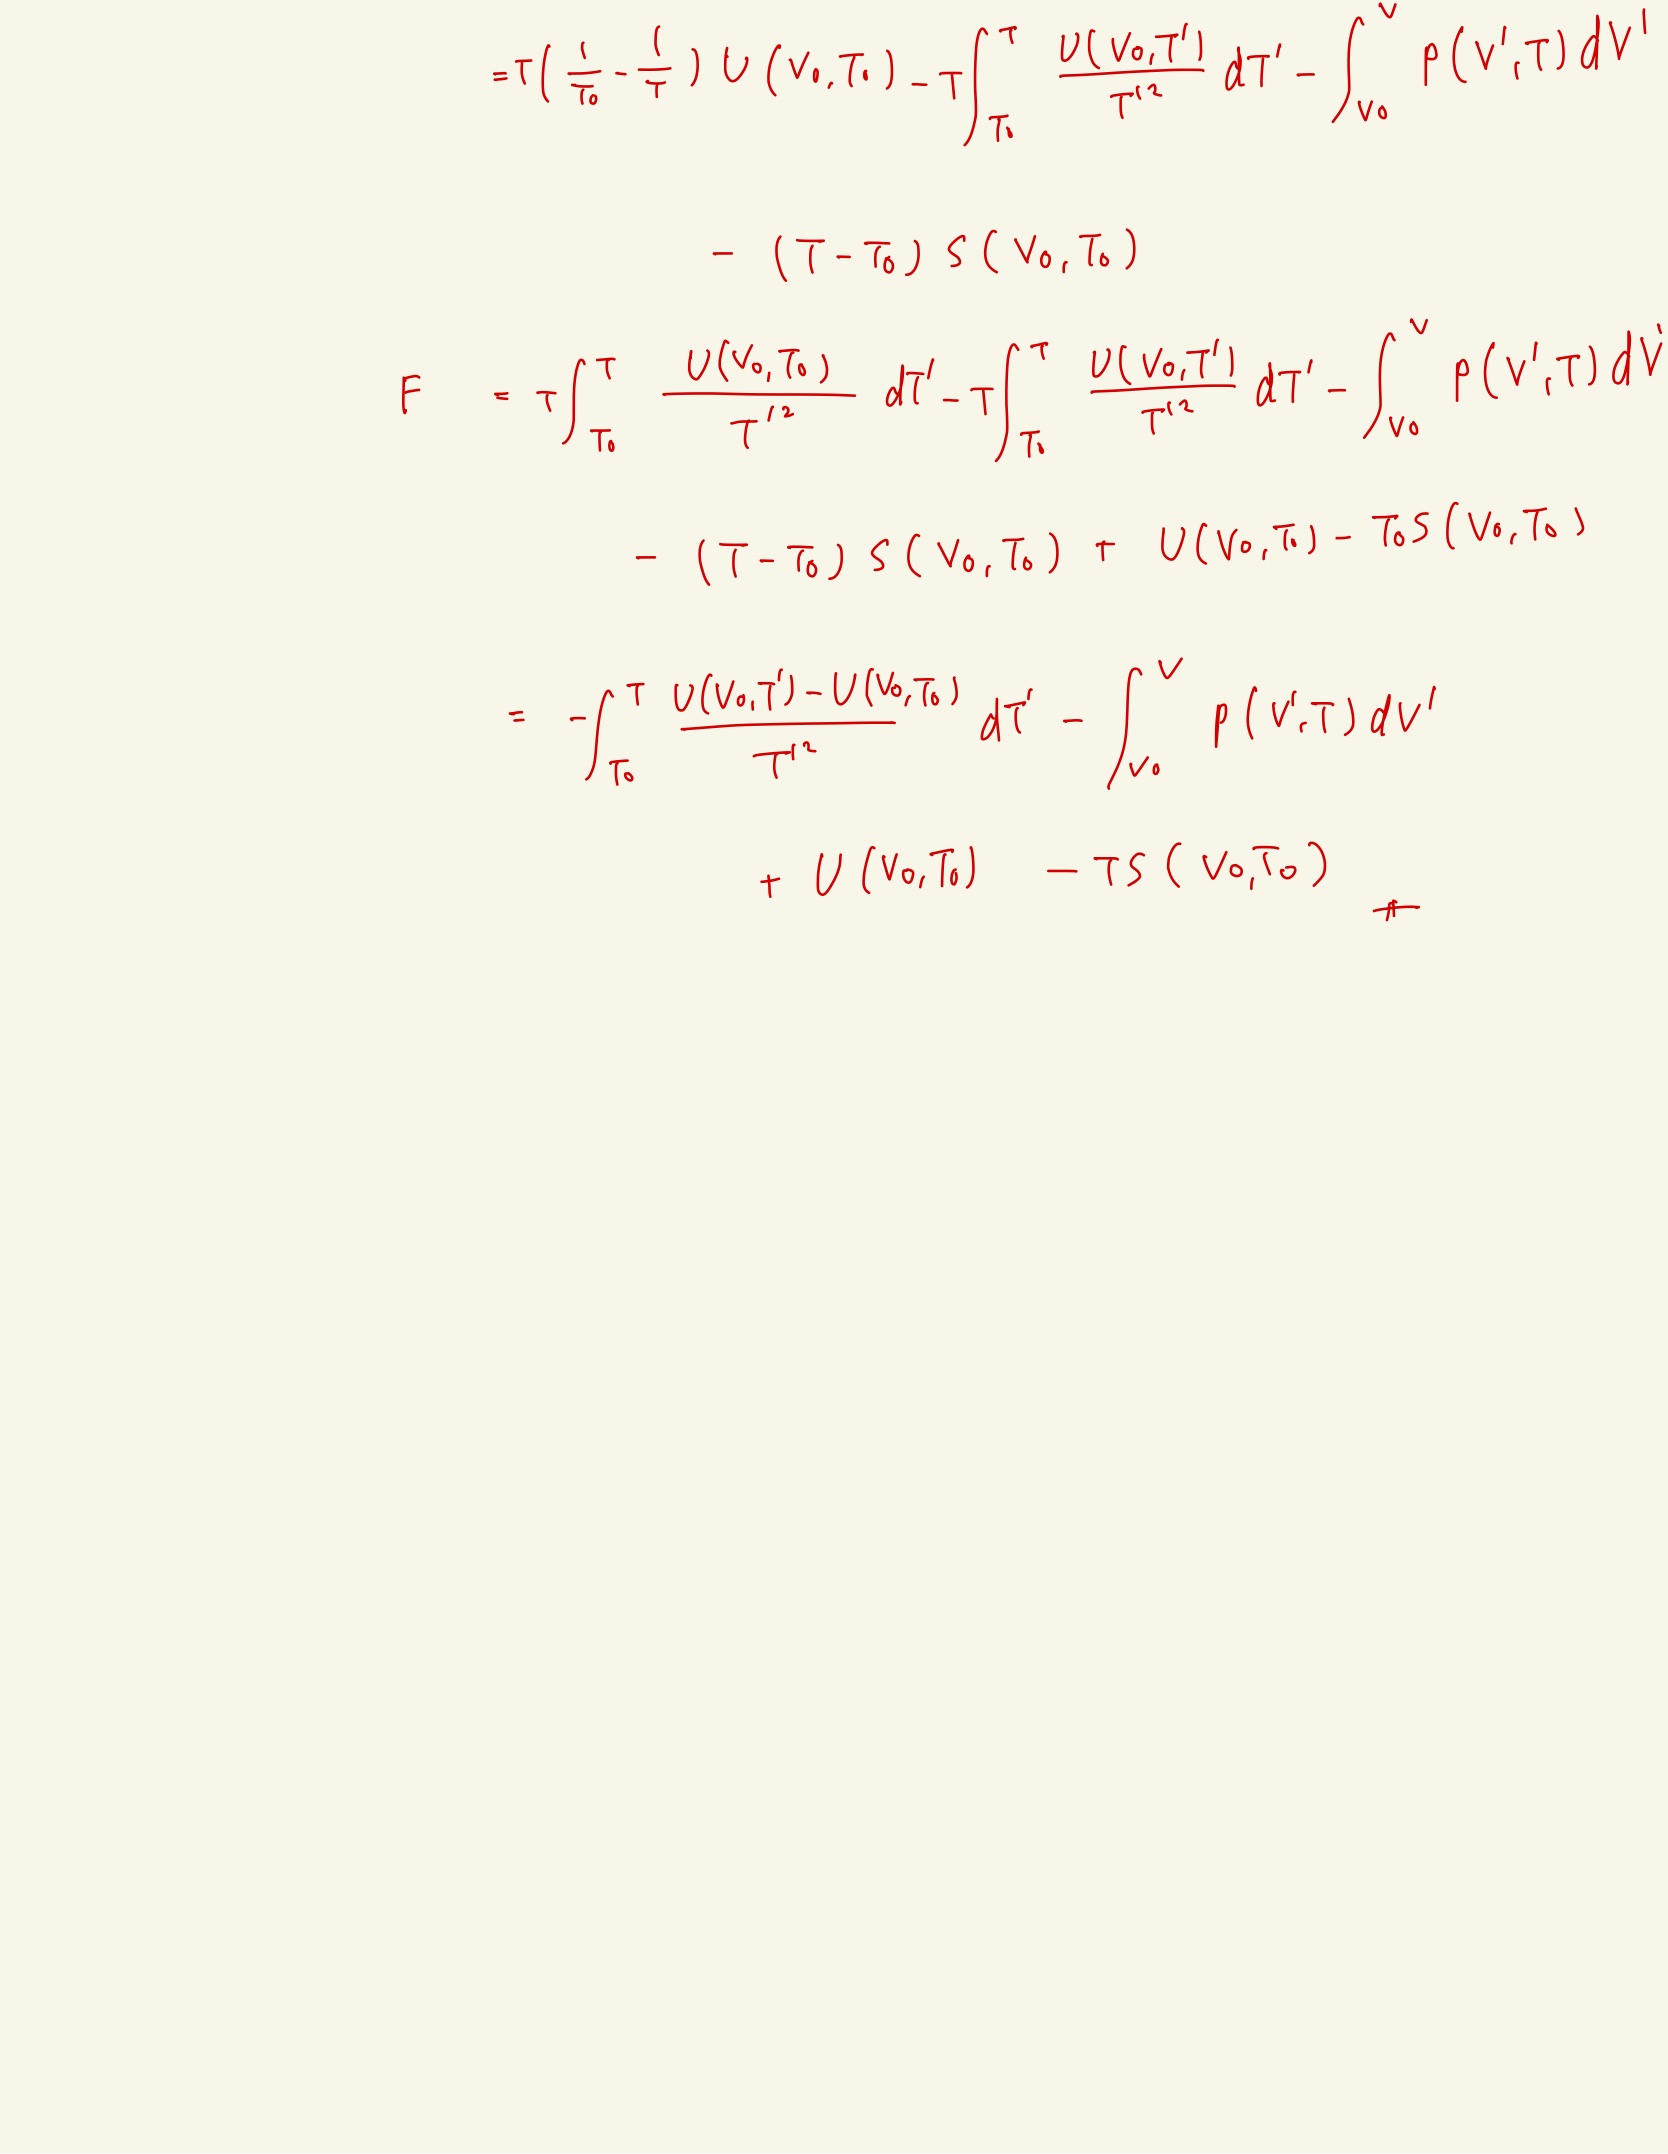 = T ( 1/T₀ - 1/T ) U (V₀, T₀) - T ∫_{T₀}^{T} U(V₀,T')/T'² dT' - ∫_{V₀}^{V} P(V',T) dV'
- (T - T₀) S (V₀, T₀)
F = T ∫_{T₀}^{T} U(V₀,T₀)/T'² dT' - T ∫_{T₀}^{T} U(V₀,T')/T'² dT' - ∫_{V₀}^{V} P(V',T) dV'
- (T - T₀) S (V₀, T₀) + U(V₀,T₀) - T₀S(V₀,T₀)
= - ∫_{T₀}^{T} U(V₀,T') - U(V₀,T₀)/T'² dT' - ∫_{V₀}^{V} P(V',T) dV'
+ U (V₀,T₀) - TS (V₀,T₀)